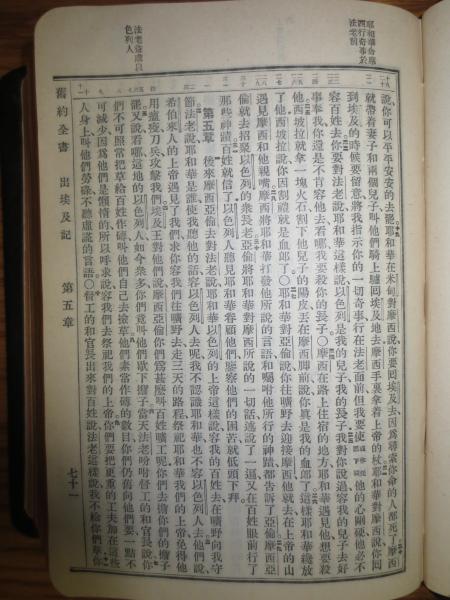 耶和華命摩西行奇事於法老前
法老益虐以色列人
說、你可以平平安安的去罷。耶和華在米甸對摩西說、你要回埃及去、因爲尋索你命的人都死了。摩西
就帶着妻子和兩個兒子、叫他們騎上驢回埃及地去、摩西手裏拿着上帝的杖。耶和華對摩西說、你回
到埃及的時候要留意將我指示你的一切奇事行在法老面前、但我要使他的心剛硬、他必不
容百姓去。你要對法老說、耶和華這樣說、以色列是我的兒子、我的長子。我對你說過、容我的兒子去好
事奉我、你還是不肯容他去、看哪、我要殺你的長子。○摩西在路上住宿的地方、耶和華遇見他、想要殺
他。西坡拉就拿一塊火石割下他兒子的陽皮、丟在摩西脚前、說、你眞是我的血郎了。這樣耶和華纔放
了他、西坡拉說、你因割禮就是血郎了。○耶和華對亞倫說、你往曠野去迎接摩西、他就去、在上帝的山
遇見摩西、和他親嘴。摩西將耶和華打發他所說的言語、和囑咐他所行的神蹟、都告訴了亞倫。摩西亞
倫就去招聚以色列的衆長老。亞倫將耶和華對摩西所說的一切話述說了一遍、又在百姓眼前行了
那些神蹟。百姓就信了、以色列人聽見耶和華眷顧他們、鑒察他們的困苦、就低頭下拜。
第五章　後來摩西亞倫去對法老說、耶和華以色列的上帝這樣說、容我的百姓去、在曠野向我守
節。法老說、耶和華是誰、使我聽他的話、容以色列人去呢、我不認識耶和華、也不容以色列人去。他們說、
希伯來人的上帝遇見了我們、求你容我們往曠野去走三天的路程、祭祀耶和華我們的上帝、免得他
用瘟疫刀兵攻擊我們。埃及王對他們說、摩西亞倫、你們爲甚麼叫百姓曠工呢、你們去擔你們的擔子
罷。又說、看哪、這地的以色列人如今衆多、你們竟叫他們歇下擔子。當天法老吩咐督工的和官長說、你
們不可照常把草給百姓作磚、叫他們自己去撿草。他們素常作磚的數目、你們仍舊向他們要、一點不
可減少、因爲他們是懶惰的、所以呼求說、容我們去祭祀我們的上帝。你們要把更重的工夫加在這些
人身上、叫他們勞碌、不聽虛謊的言語。○督工的和官長出來對百姓說、法老這樣說、我不給你們草、你
舊約全書　出埃及記　第五章　七十一